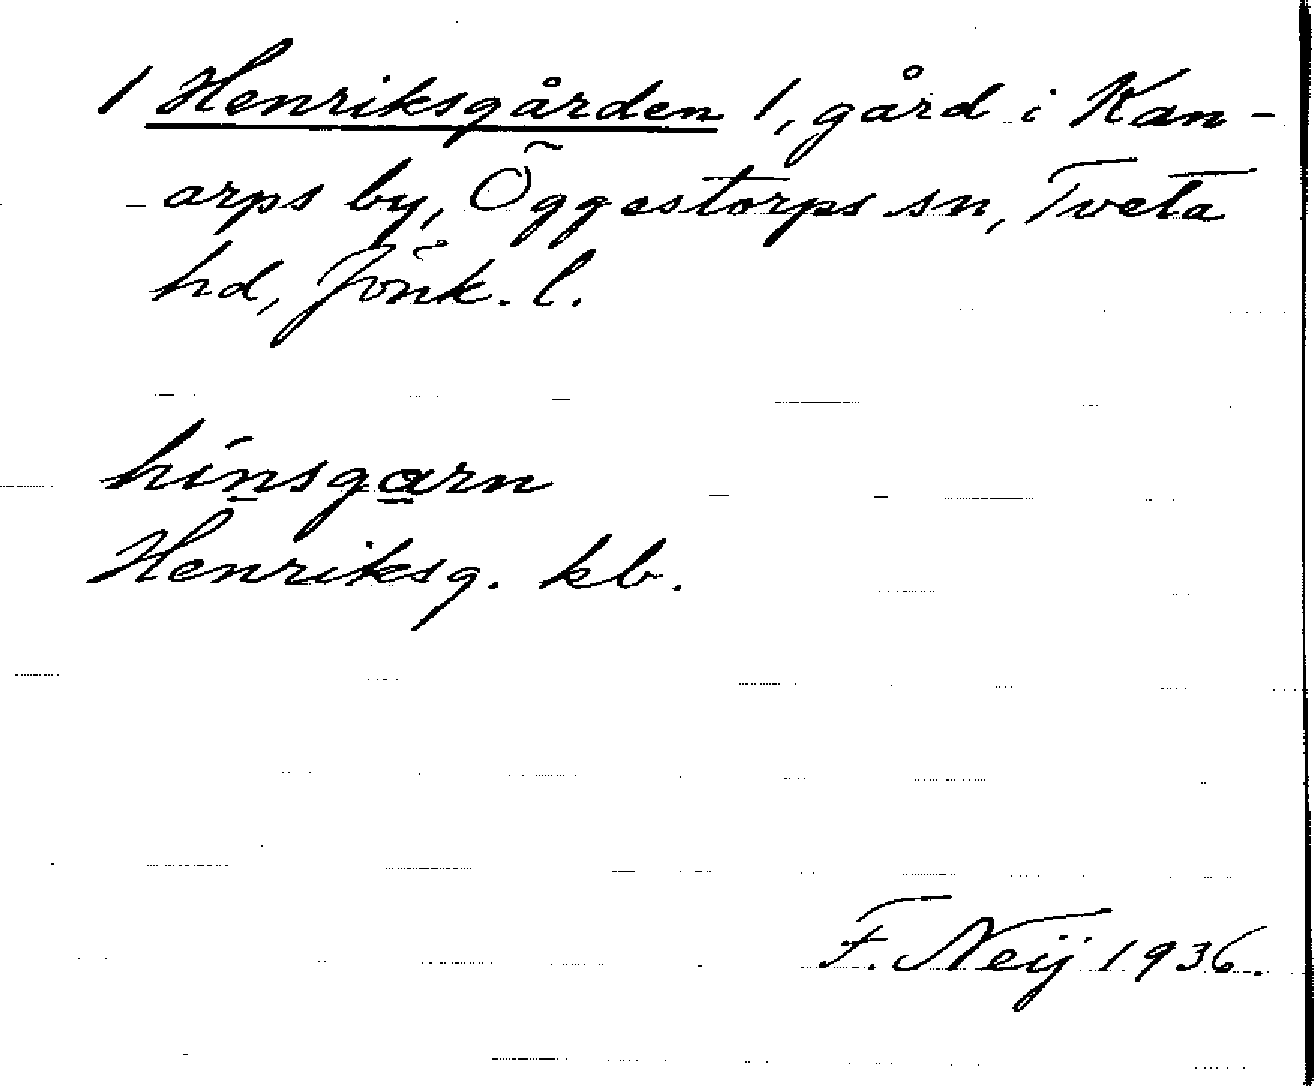 1 Henriksgården 1, gård i Kan-
arps by, Öggestorps sn, Tveta
hd, Jönk. l.
hínsgarn
Henriksg. kb.
F. Neij 1936.